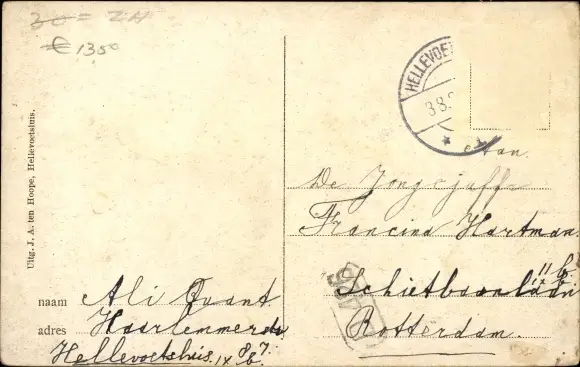 30 = ZH
€ 13,50
HELLEVOET
3.8.
Aan
De Jongejuffr
Francina Hartman
Schietbaanlaan
Rotterdam.
Uitg. J. A. ten Hoope, Hellevoetsluis.
naam Ali Quant
adres Haarlemmerstr
Hellevoetsluis.